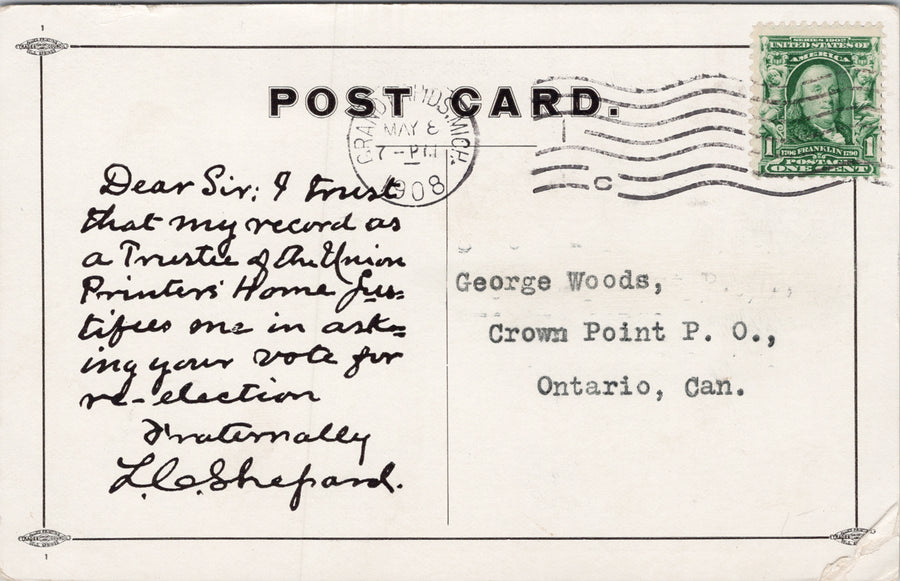 1
POST CARD.
GRAND RAPIDS, MICH
MAY 8
7-PM
1908
C
SERIES 1902
UNITED STATES OF
AMERICA
1 1
1706 FRANKLIN 1790
POSTAGE
ONE CENT
Dear Sir: I trust
that my record as
a Trustee of the Union
Printers' Home jus=
tifies me in ask=
ing your vote for
re-election
Fraternally
L.C. Shepard.
George Woods,
Crown Point P. O.,
Ontario, Can.
1